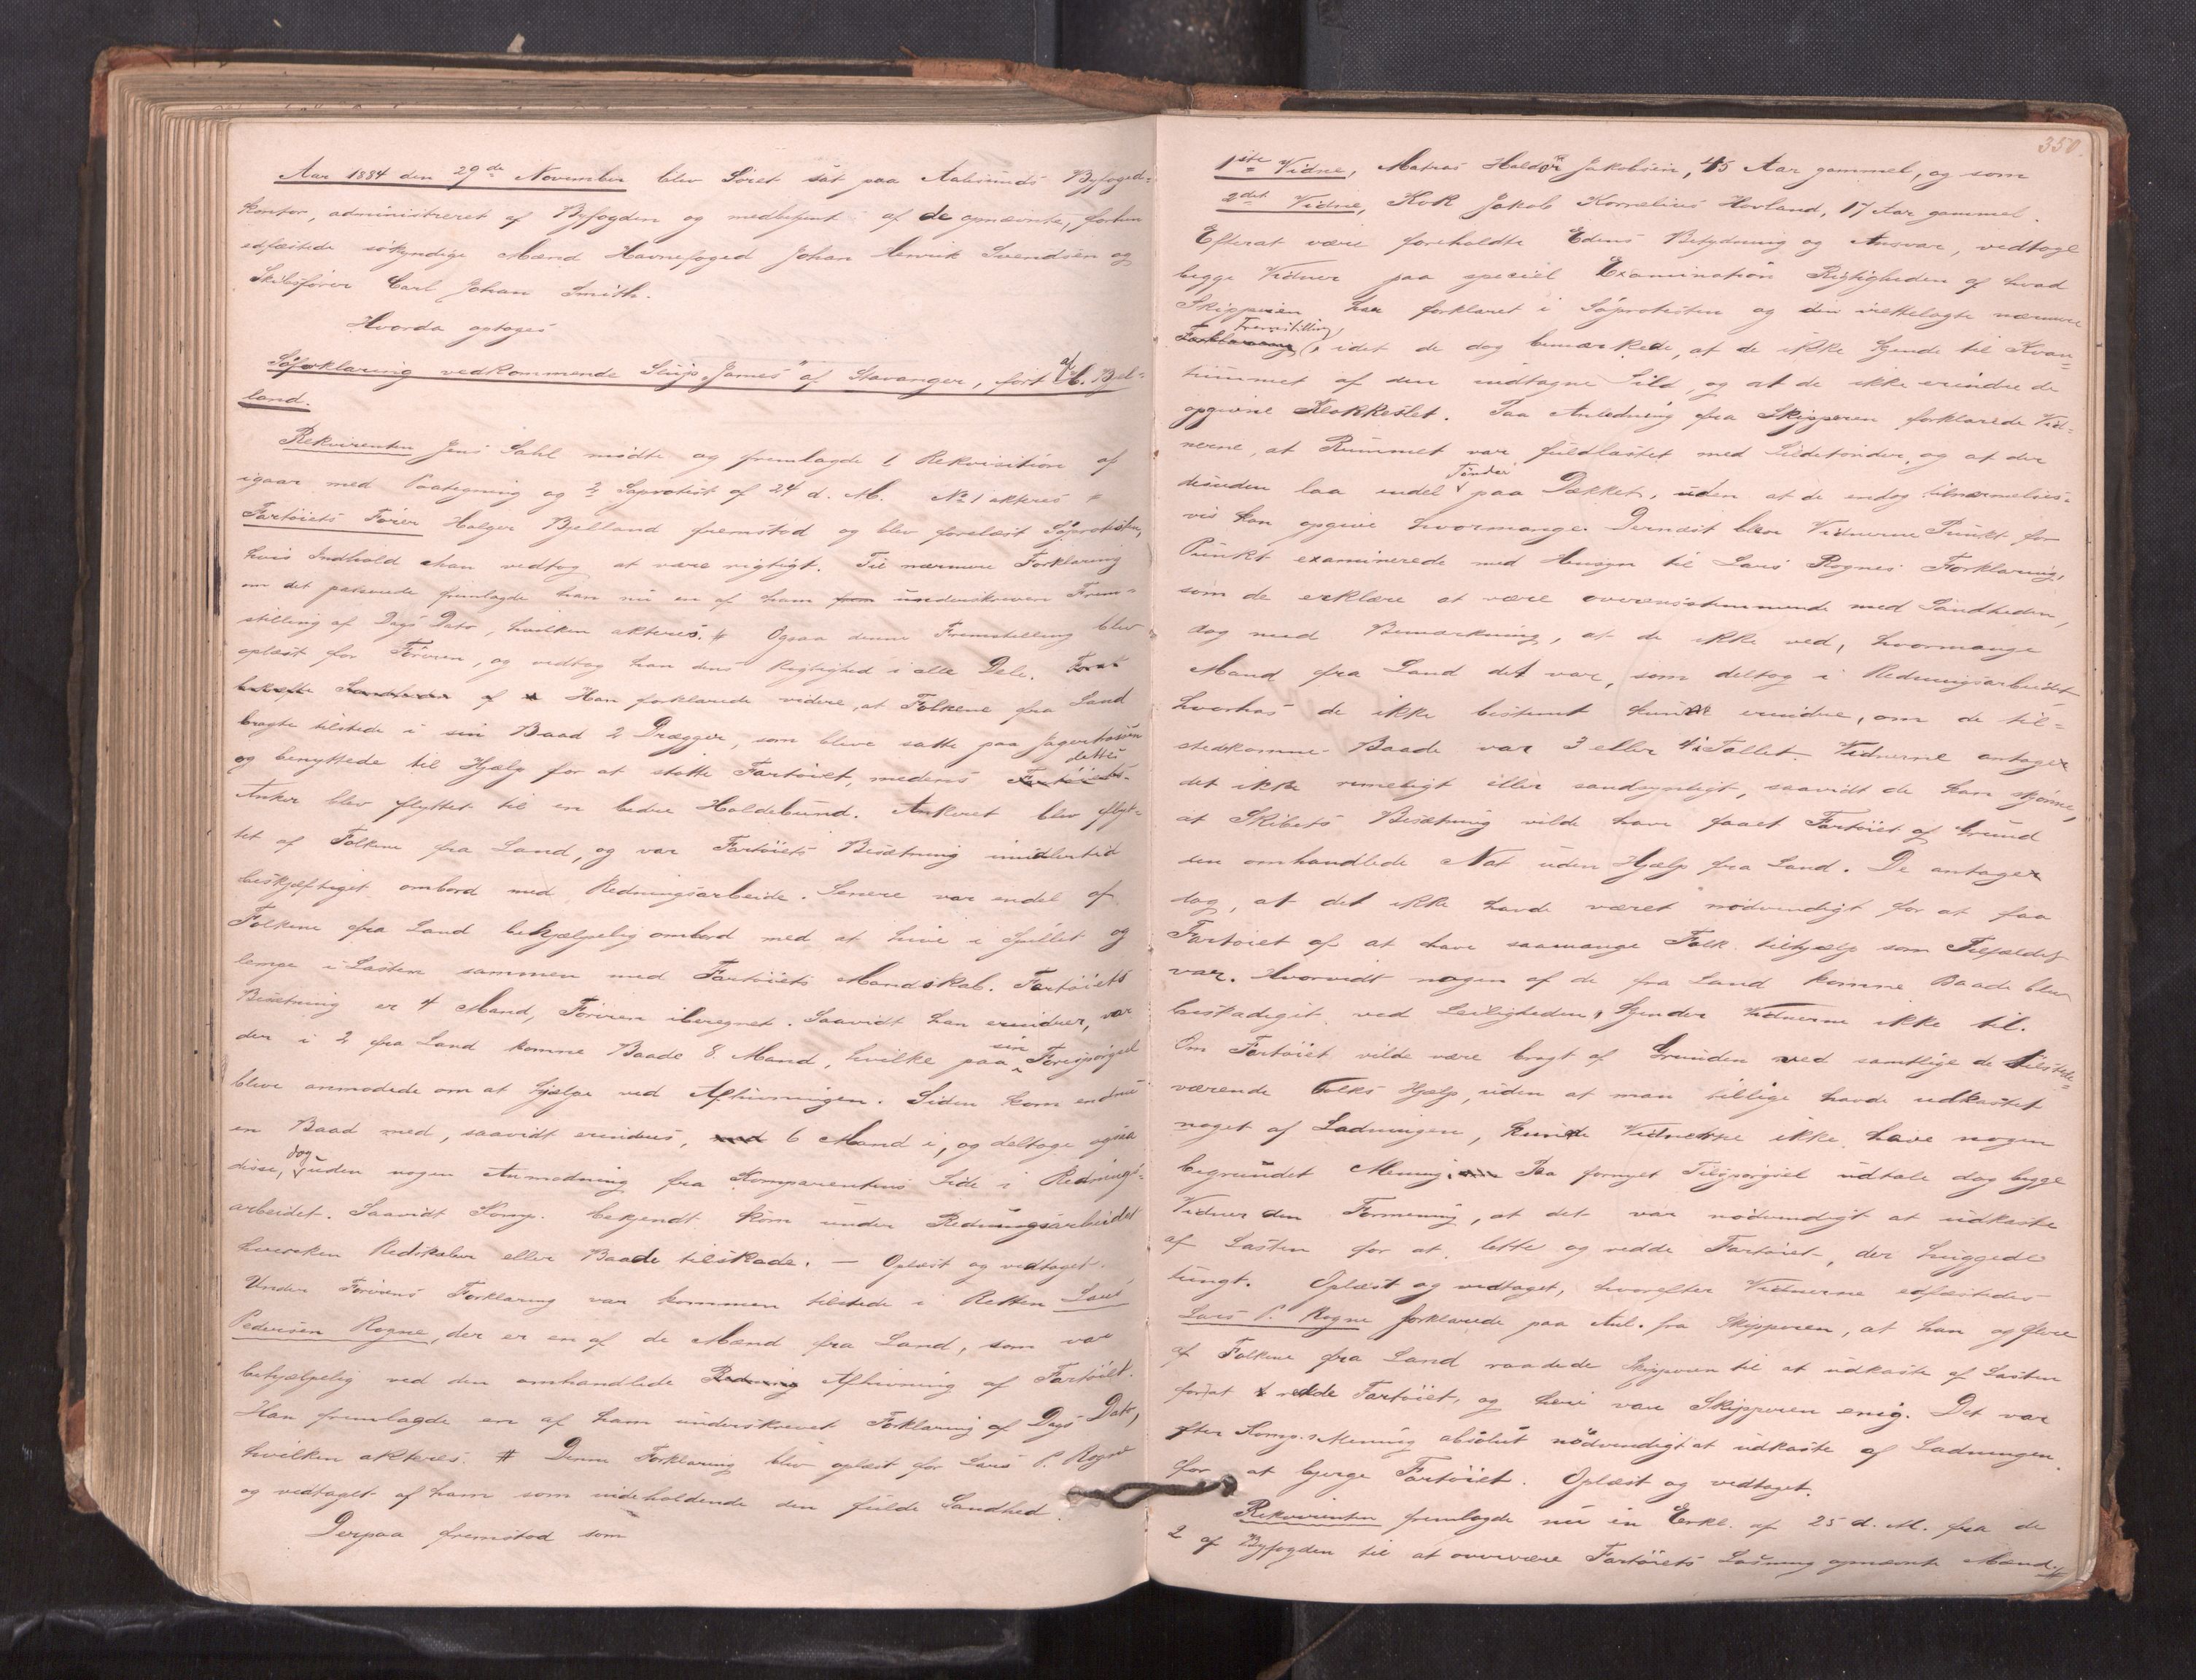 Aar 1884 den 29de November blev Søret sat paa Aalesunds Byfoged-
kontor, administreret af Byfogden og medbetjent af de opnævnte, forhen
edfæstede søkyndige Mænd Havnefoged Johan Henrik Svendsen og
Skibsfører Carl Johan Smith.
Hvorda optoges
Søforklaring vedkommende Slup "James" af Stavanger, ført af H. Bjel-
land.
Rekvirenten Jens Dahl mødte og fremlagde 1, Rekvisition af
igaar med Paategning og 2, Søprotest af 24 d. M. No 1 akteres #
Fartøiets Fører Holger Bjelland fremstod og blev forelæst Søprotesten,
hvis Indhold han vedtog at være rigtigt. Til nærmere Forklaring
om det passerede fremlagde han nu en af ham underskreven Frem-
stilling af Dags Dato, hvilken akteres. # Ogsaa denne Fremstilling blev
oplæst for Føreren, og vedtog han dens Rigtighed i alle Dele. Forat
bekræfte Sandheden af Han forklarede videre, at Folkene fra Land
bragte tilstede i sin Baad 2 Drægger, som bleve satte paa
og benyttede til Hjælp for at støtte Fartøiet, medens Fartøiets dettes
Anker blev flyttet til en bedre Holdebund. Ankeret blev flyt-
tet af Folkene fra Land, og var Fartøiets Besætning imidlertid
beskjæftiget ombord med Redningsarbeide. Senere var endel af
Folkene fra Land behjælpelig ombord med at hive i Spillet og
lempe i Lasten sammen med Fartøiets Mandskab. Fartøiets
Besætning er 4 Mand, Føreren iberegnet. Saavidt han erindrer, var
der i 2 fra Land komne Baade 8 Mand, hvilke paa sin Forespørgsel
bleve anmodede om at hjælpe ved Afhivningen. Siden kom endnu
en Baad med, saavidt erindres, 6 Mand i, og deltoge ogsaa
disse, dog uden nogen Anmodning fra Komparentens Side i Rednings-
arbeidet. Saavidt Komp. bekjendt kom under Redningsarbeidet
hverken Redskaber eller Baade tilskade. — Oplæst og vedtaget.
Under Førerens Forklaring var kommen tilstede i Retten Lars
Pedersen Rogne, der er en af de Mænd fra Land, som var
behjælpelig ved den omhandlede Redning Afhivning af Fartøiet.
Han fremlagde en af ham underskrevet Forklaring af Dags Dato,
hvilken akteres. # Denne Forklaring blev oplæst for Lars P. Rogne
og vedtaget af ham som indeholdende den fulde Sandhed.
Derpaa fremstod som
350.
1ste Vidne, Matros Haldor Jakobsen, 45 Aar gammel, og som
2det Vidne, Kok Jakob Kornelius Hovland, 17 Aar gammel.
Efterat være foreholdte Edens Betydning og Ansvar, vedtoge
begge Vidner paa speciel Examination Rigtigheden af hvad
Skipperen har forklaret i Søprotesten og den irettelagte nærmere
Forklaring Fremstilling, idet de dog bemærkede, at de ikke kjende til Kvan-
tummet af den indtagne Sild, og at de ikke erindre de
opgivne Klokkeslet. Paa Anledning fra Skipperen forklarede Vid-
nerne, at Rummet var fuldlastet med Sildetønder, og at der
desuden laa endel Tønder paa Dækket, uden at de endog tilnærmelses-
vis kan opgive hvormange. Dernæst blev Vidnerne Punkt for
Punkt examinerede med Hensyn til Lars Rognes Forklaring,
som de erklære at være overensstemmende med Sandheden,
dog med Bemærkning, at de ikke ved, hvormange
Mand fra Land det var, som deltog i Redningsarbeidet,
hvorhos de ikke bestemt kunde erindre, om de til-
stedekomne Baade var 3 eller 4 i Tallet. Vidnerne antager
det ikke rimeligt eller sandsynligt, saavidt de kan skjønne,
at Skibets Besætning vilde have faaet Fartøiet af Grund
den omhandlede Nat uden Hjælp fra Land. De antager
dog, at det ikke havde været nødvendigt for at faa
Fartøiet af at have saamange Folk tilhjælp som Tilfældet
var. Hvorvidt nogen af de fra Land komne Baade blev
beskadiget ved Leiligheden, kjender Vidnerne ikke til.
Om Fartøiet vilde være bragt af Grunden ved samtlige de tilstede-
værende Folks Hjælp, uden at man tillige havde udkastet
noget af Ladningen, kunde Vidnerne ikke have nogen
begrundet Mening. Paa fornyet Tilspørgsel udtale dog begge
Vidner den Formening, at det var nødvendigt at udkaste
af Lasten for at lette og redde Fartøiet, der huggede
tungt. Oplæst og vedtaget, hvorefter Vidnerne edfæstedes
Lars P. Rogne forklarede paa Anl. fra Skipperen, at han og flere
af Folkene fra Land raadede Skipperen til at udkaste af Lasten
forat redde Fartøiet, og heri var Skipperen enig. Det var
efter Komp.s Mening absolut nødvendigt at udkaste af Ladningen
for at bjerge Fartøiet. Oplæst og vedtaget.
Rekvirenten fremlagde nu en Erkl. af 25 d. M. fra de
2 af Byfogden til at overvære Fartøiets Losning opnævnte Mænd. #